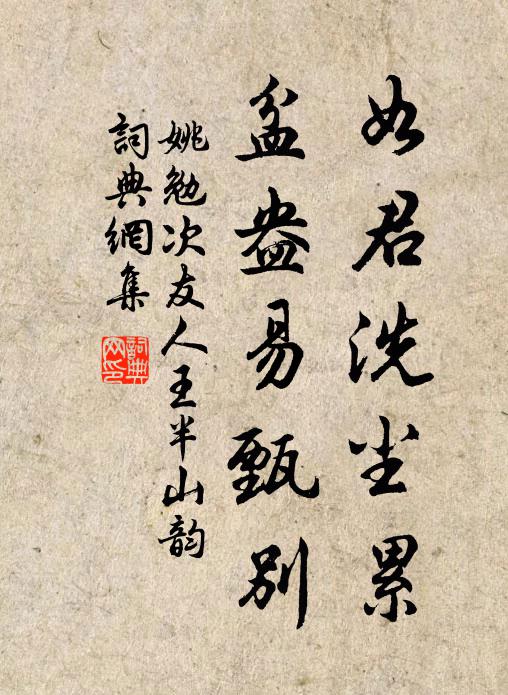 如君洗尘累
盆盎易甄别
姚勉次友人王半山韵
詞典網集
詞典網印